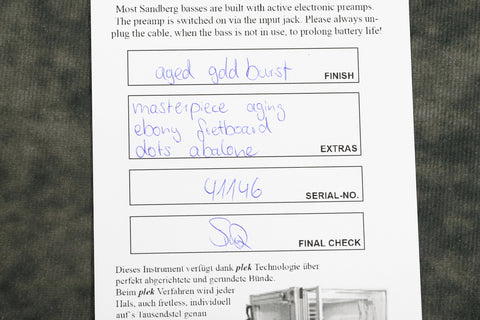 Most Sandberg basses are built with active electronic preamps.
The preamp is switched on via the input jack. Please always un-
plug the cable, when the bass is not in use, to prolong battery life!
aged gold burst FINISH
masterpiece aging
ebony fretboard
dots abalone EXTRAS
41146 SERIAL-NO.
FINAL CHECK
Dieses Instrument verfügt dank plek Technologie über
perfekt abgerichtete und gerundete Bünde.
Beim plek Verfahren wird jeder
Hals, auch fretless, individuell
auf`s Tausendstel genau